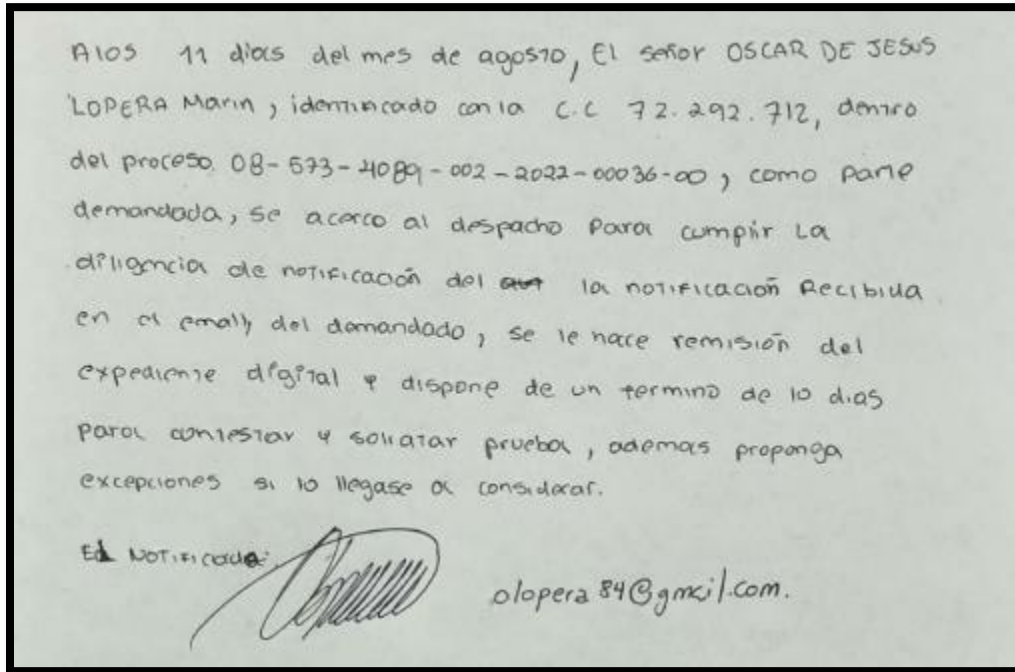 A los 11 dias del mes de agosto, El señor OSCAR DE JESUS
LOPERA Marin, identificado con la C.C 72.292.712, dentro
del proceso 08-573-4089-002-2022-00036-00, como parte
demandada, se acerco al despacho para cumplir La
diligencia de notificación del la notificación Recibida
en el email del demandado, se le hace remisión del
expediente digital y dispone de un termino de 10 dias
para contestar y solicitar prueba, ademas proponga
excepciones si lo llegase a considerar.
El Notificado:
olopera84@gmail.com.